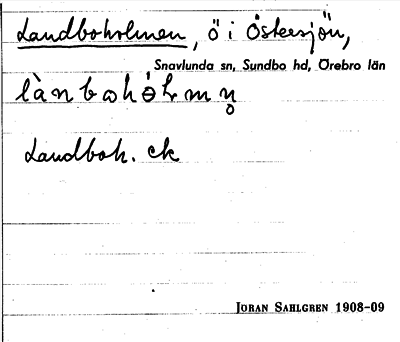 Landboholmen, ö i Östersjön,
Snavlunda sn, Sundbo hd, Örebro län
Landboh. ek
JORAN SAHLGREN 1908-09